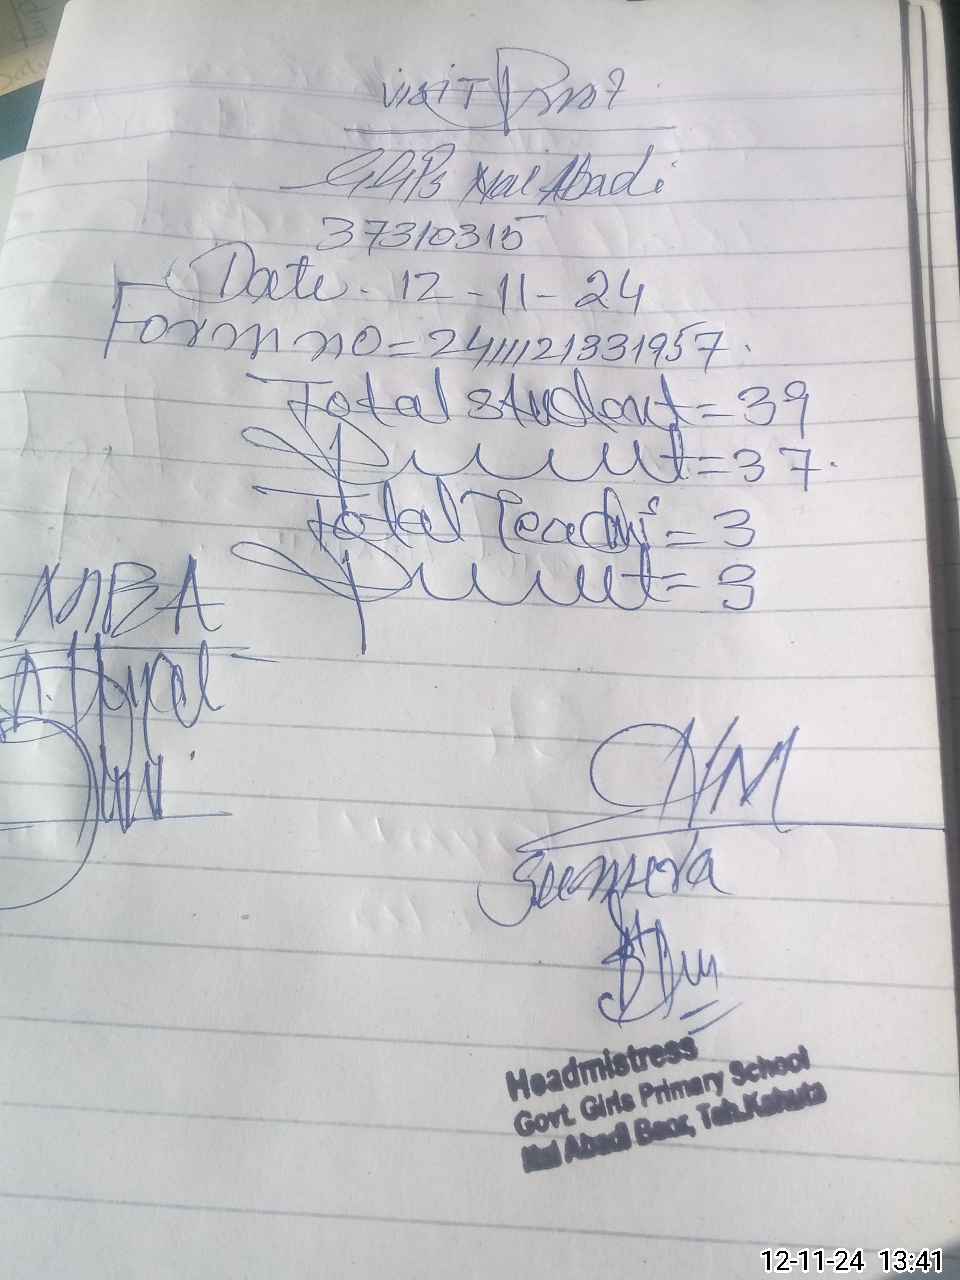 visit
GGPs Nai Abadi
37310315
Date. 12-11-24
Form no = 2411121331957.
Total student = 39
Present = 37.
Total Teacher = 3
Present = 3
HM
Sumera
Headmistress
Govt. Girls Primary School
Nai Abadi Beor, Teh.Kahuta
12-11-24 13:41